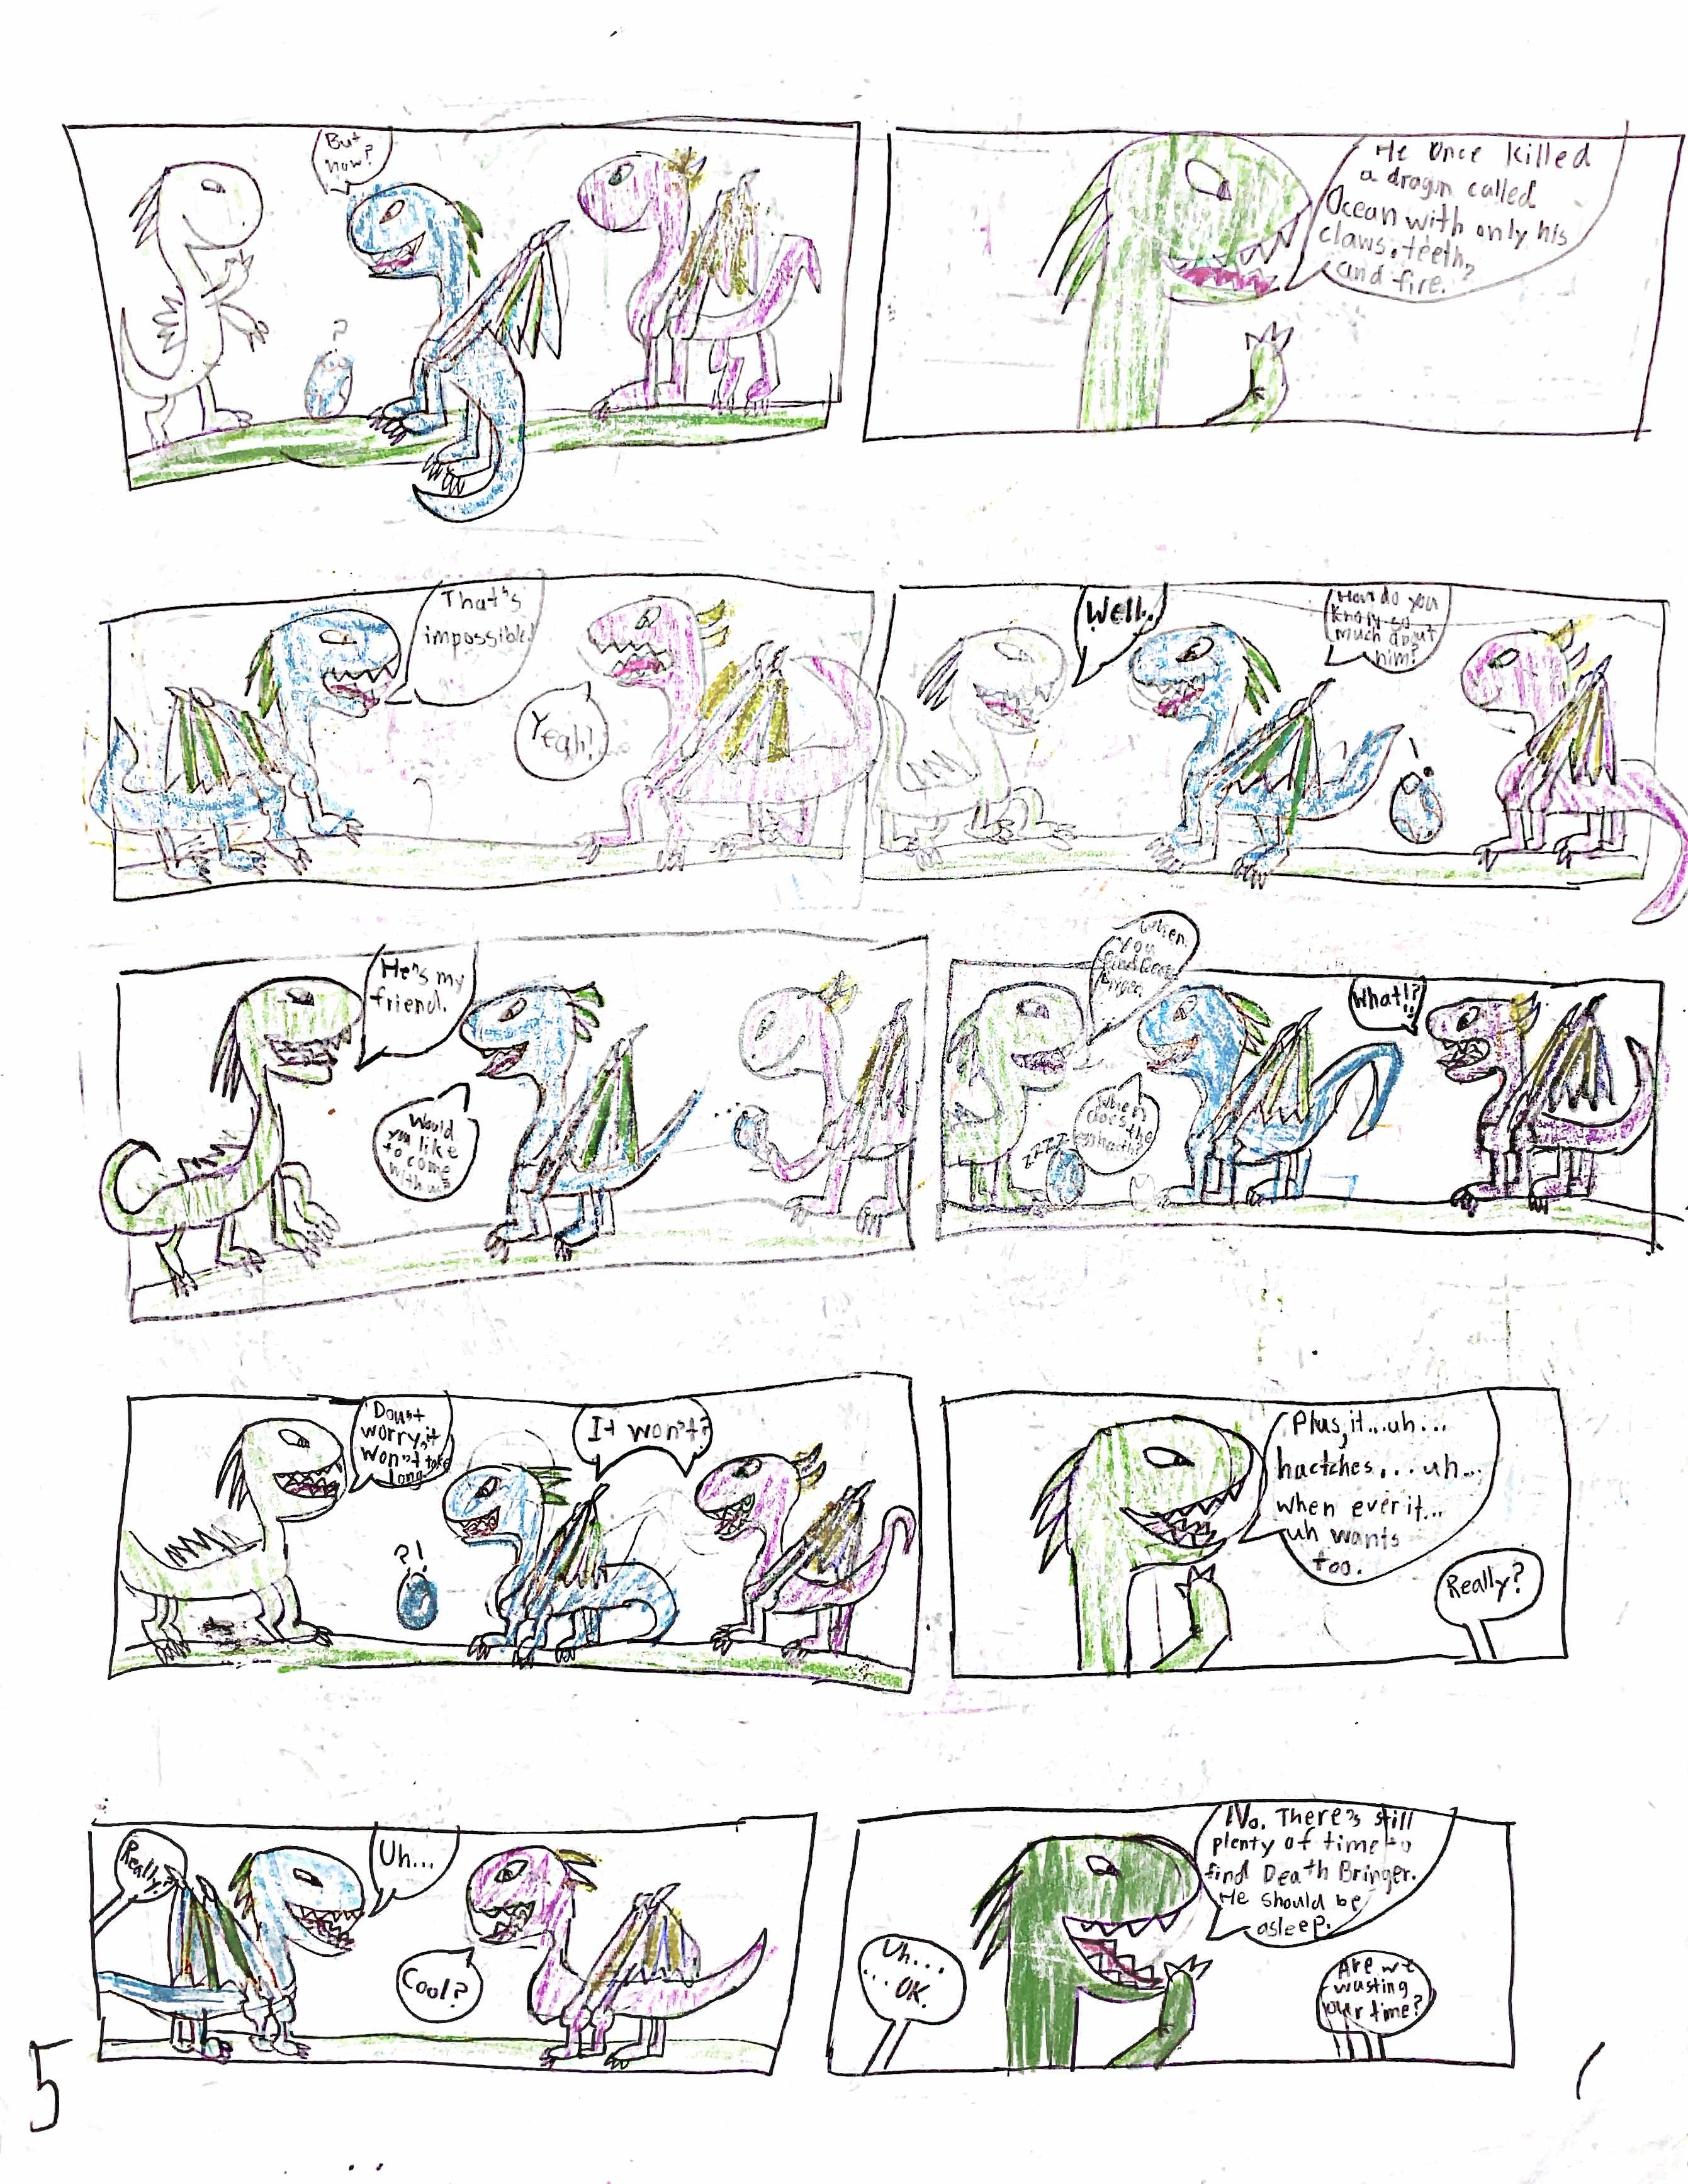 But
how?
?
He Once Killed
a dragon called
Ocean with only his
claws, teeth,
and fire.
That's
impossible!
Yeah!
Well..
How do you
know so
much about
him?
!
He's my
friend.
Would
you like
to come
with us
...
When
you
find Death
When
does the
egg hatch?
zzzz
What!?
Don't
worry, it
won't take
long.
?!
It won't?
Plus, it...uh...
hactches....uh...
when ever it...
uh wants
too.
Really?
Really?
Uh...
Cool?
No. There's still
plenty of time to
find Death Bringer.
He should be
asleep.
Uh...
...OK.
Are we
wasting
our time?
5